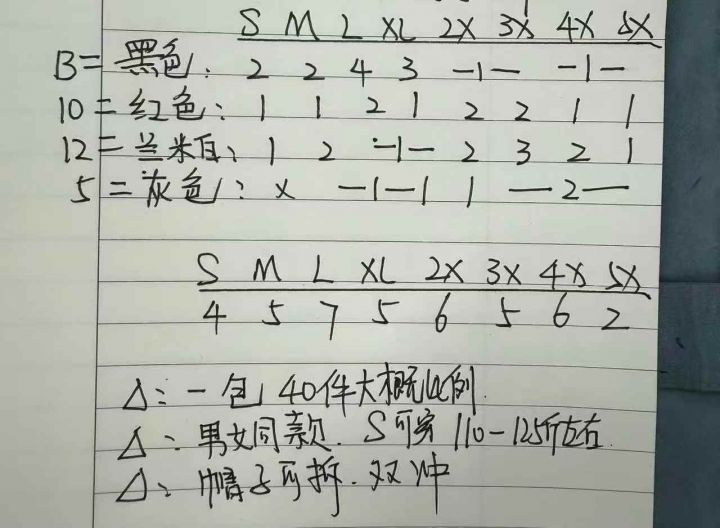 S M L XL 2X 3X 4X 5X
13= 黑色: 2 2 4 3 —1— —1—
10=红色: 1 1 2 1 2 2 1 1
12=兰米白: 1 2 —1— 2 3 2 1
5=灰色: x —1—1 1 —2—
S M L XL 2X 3X 4X 5X
4 5 7 5 6 5 6 2
△: 一包40件大概比例.
△: 男女同款. S可穿110-125斤左右
△: 帽子可拆. 双冲